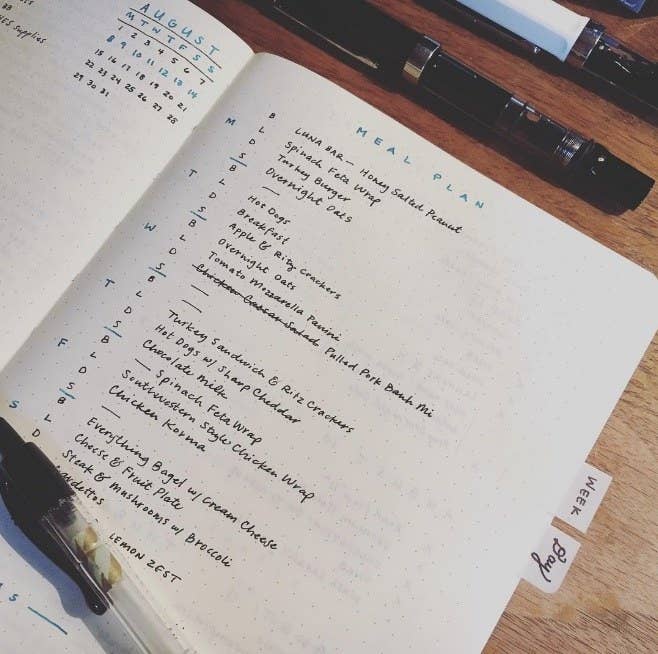 Supplies
AUGUST
M T W T F S S
1 2 3 4 5 6 7
8 9 10 11 12 13 14
15 16 17 18 19 20 21
22 23 24 25 26 27 28
29 30 31
MEAL PLAN
M B LUNA BAR — Honey Salted Peanut
L Spinach Feta Wrap
D Turkey Burger
S Overnight Oats
T B —
L Hot Dogs
D Breakfast
S Apple & Ritz Crackers
W B Overnight Oats
L Tomato Mozzarella Panini
D Chicken Caesar Salad Pulled Pork Banh Mi
S —
T B —
L Turkey Sandwich & Ritz Crackers
D Hot Dogs w/ Sharp Cheddar
S Chocolate Milk
F B — Spinach Feta Wrap
L Southwestern Style Chicken Wrap
D Chicken Korma
S —
S B Everything Bagel w/ Cream Cheese
L Cheese & Fruit Plate
D Steak & Mushrooms w/ Broccoli
LEMON ZEST
WEEK
Day